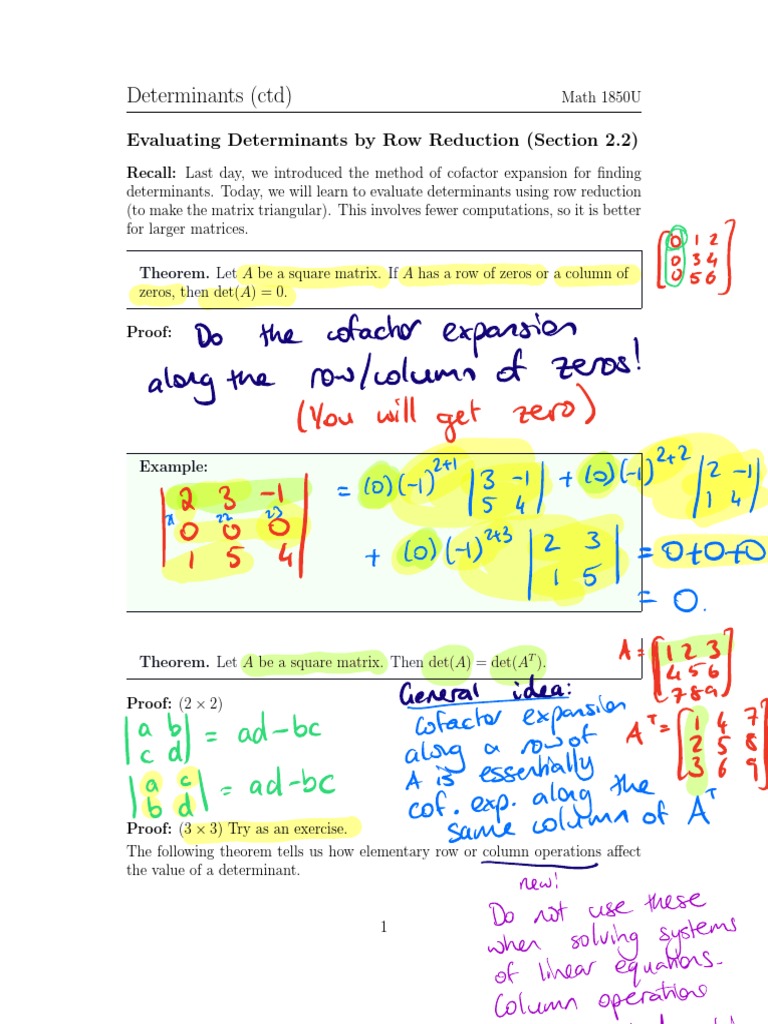 Determinants (ctd) Math 1850U
Evaluating Determinants by Row Reduction (Section 2.2)
Recall: Last day, we introduced the method of cofactor expansion for finding
determinants. Today, we will learn to evaluate determinants using row reduction
(to make the matrix triangular). This involves fewer computations, so it is better
for larger matrices.
0 1 2
0 3 4
0 5 6
Theorem. Let A be a square matrix. If A has a row of zeros or a column of
zeros, then det(A) = 0.
Proof: Do the cofactor expansion
along the row/column of zeros!
(You will get zero)
Example:
|2 3 -1|
|0 0 0|
|1 5 4|
21 22 23
= (0)(-1)^{2+1} |3 -1; 5 4| + (0)(-1)^{2+2} |2 -1; 1 4|
+ (0)(-1)^{2+3} |2 3; 1 5| = 0+0+0
= 0.
Theorem. Let A be a square matrix. Then det(A) = det(A^T).
A = [1 2 3
4 5 6
7 8 9]
Proof: (2 × 2)
|a b; c d| = ad-bc
|a c; b d| = ad-bc
General idea:
cofactor expansion
along a row of
A is essentially
cof. exp. along the
same column of A^T
A^T = [1 4 7
2 5 8
3 6 9]
Proof: (3 × 3) Try as an exercise.
The following theorem tells us how elementary row or column operations affect
the value of a determinant.
new!
Do not use these
when solving systems
of linear equations.
Column operations
1